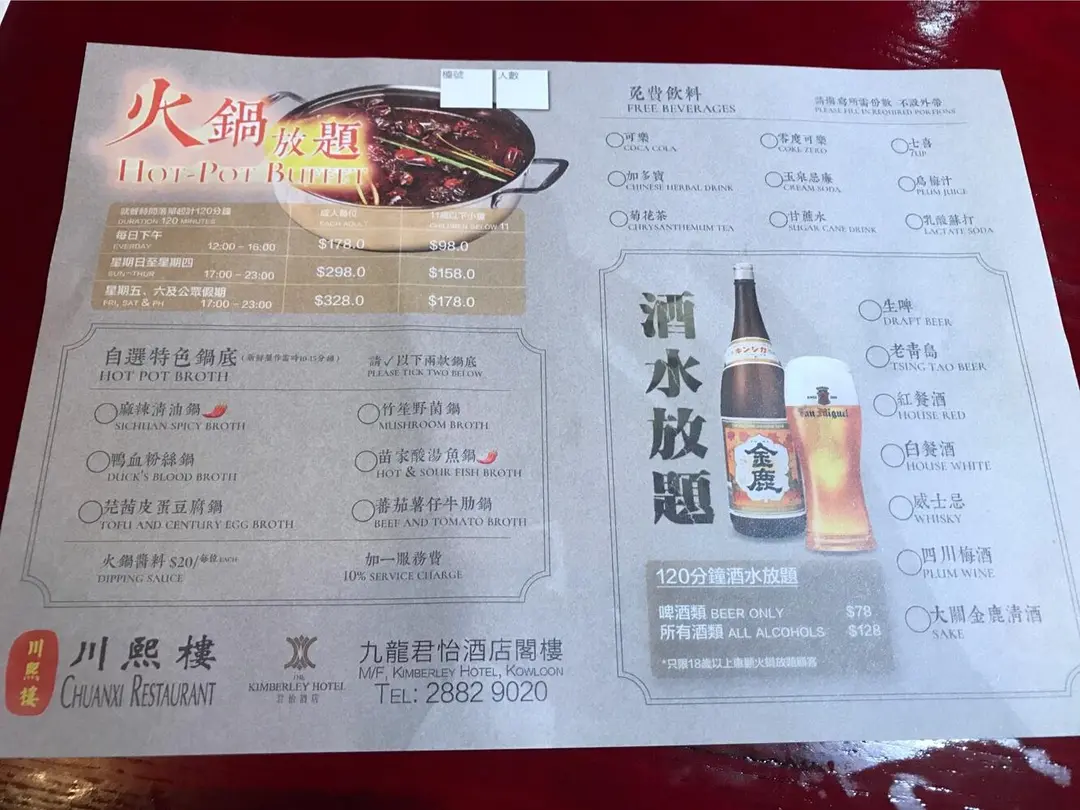 火鍋放題
HOT-POT BUFFET
檯號 人數
就餐時間落單起計120分鐘
DURATION 120 MINUTES
成人每位
EACH ADULT
11歲以下小童
CHILDREN BELOW 11
每日下午
EVERDAY 12:00 - 16:00 $178.0 $98.0
星期日至星期四
SUN-THUR 17:00 - 23:00 $298.0 $158.0
星期五、六及公眾假期
FRI, SAT & PH 17:00 - 23:00 $328.0 $178.0
自選特色鍋底(新鮮製作需時10-15分鐘)
HOT POT BROTH
請✓以下兩款鍋底
PLEASE TICK TWO BELOW
麻辣清油鍋
SICHUAN SPICY BROTH
竹笙野菌鍋
MUSHROOM BROTH
鴨血粉絲鍋
DUCK'S BLOOD BROTH
苗家酸湯魚鍋
HOT & SOUR FISH BROTH
芫茜皮蛋豆腐鍋
TOFU AND CENTURY EGG BROTH
蕃茄薯仔牛肋鍋
BEEF AND TOMATO BROTH
火鍋醬料 $20/每位 EACH
DIPPING SAUCE
加一服務費
10% SERVICE CHARGE
川熙樓
川熙樓
CHUANXI RESTAURANT
THE
KIMBERLEY HOTEL
君怡酒店
九龍君怡酒店閣樓
M/F, KIMBERLEY HOTEL, KOWLOON
TEL: 2882 9020
免費飲料
FREE BEVERAGES
請填寫所需份數 不設外帶
PLEASE FILL IN REQUIRED PORTIONS
可樂
COCA COLA
零度可樂
COKE ZERO
七喜
7UP
加多寶
CHINESE HERBAL DRINK
玉泉忌廉
CREAM SODA
烏梅汁
PLUM JUICE
菊花茶
CHRYSANTHEMUM TEA
甘蔗水
SUGAR CANE DRINK
乳酸蘇打
LACTATE SODA
酒水放題
キンシカ
金鹿
San Miguel
生啤
DRAFT BEER
老青島
TSING TAO BEER
紅餐酒
HOUSE RED
白餐酒
HOUSE WHITE
威士忌
WHISKY
四川梅酒
PLUM WINE
大關金鹿清酒
SAKE
120分鐘酒水放題
啤酒類 BEER ONLY $78
所有酒類 ALL ALCOHOLS $128
*只限18歲以上惠顧火鍋放題顧客